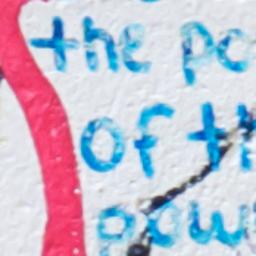 the po
of th
pow